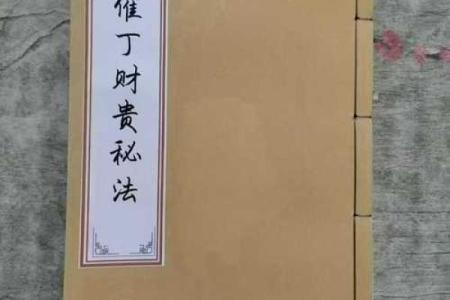 催丁财贵秘法